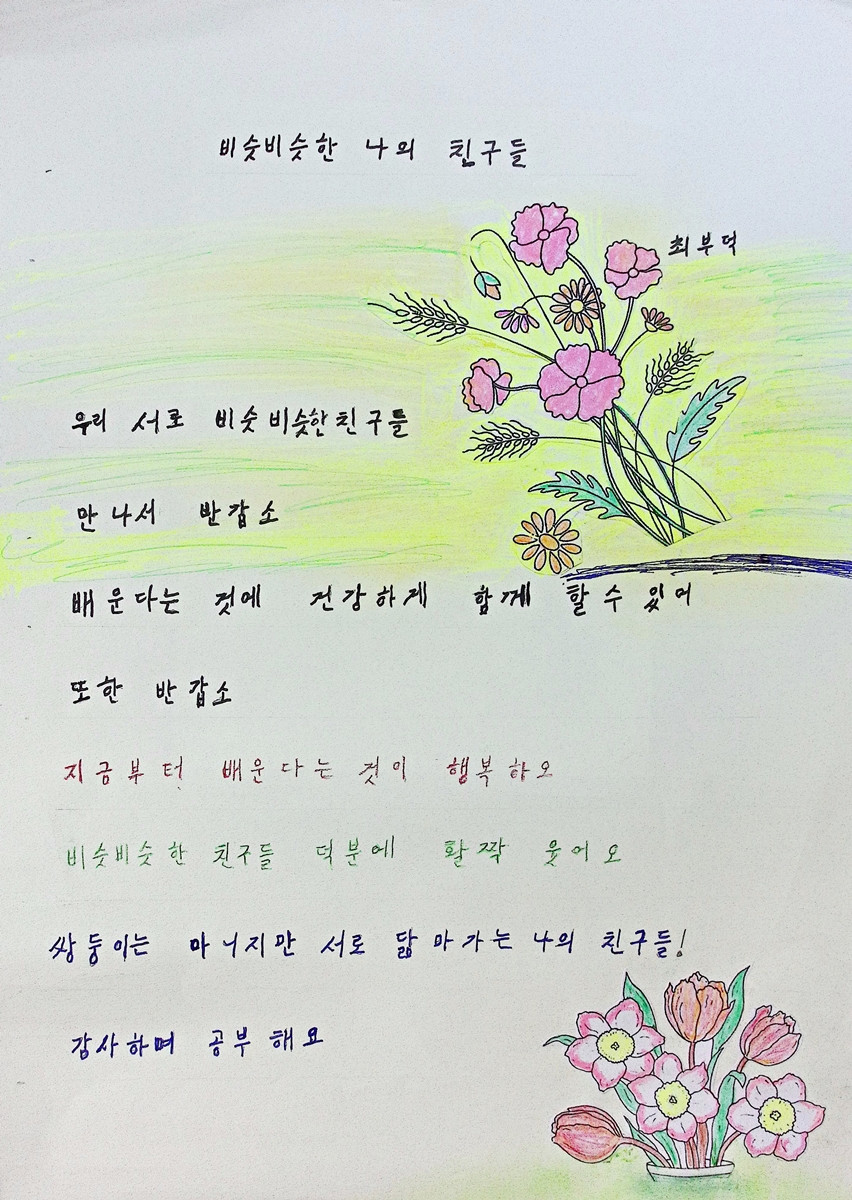 비슷비슷한 나의 친구들
최부덕
우리 서로 비슷비슷한친구들
만나서 반갑소
배운다는 것에 건강하게 함께 할수있어
또한 반갑소
지금부터 배운다는 것이 행복하오
비슷비슷한 친구들 덕분에 활짝 웃어오
쌍둥이는 아니지만 서로 닮아가는 나의 친구들!
감사하며 공부해요